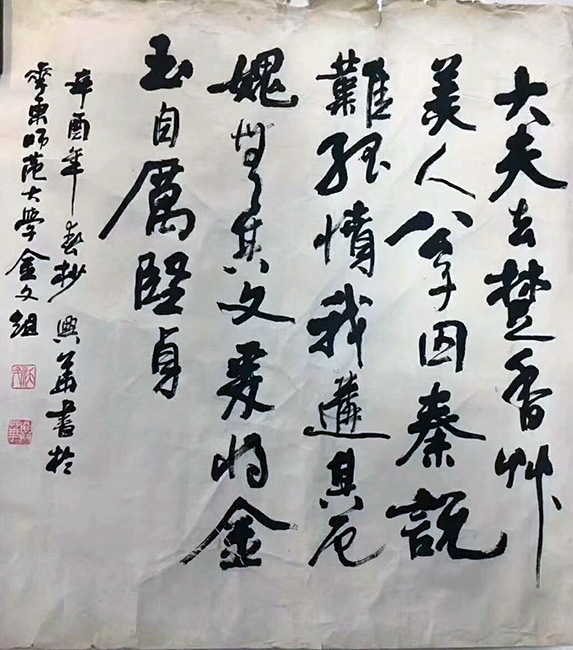 大夫去楚香艸
美人公子囚秦說
難孤憤我遘其厄
媿無其文爰將金
玉自厲堅貞
辛酉年春杪興華書於
華東师范大学金文組